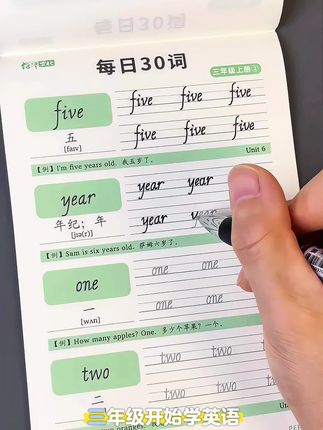 每日30词
三年级上册②
five
five five five
五
[faɪv]
five five five
【例】I'm five years old. 我五岁了。
Unit 6
year
year year
年纪；年
[jɪə(r)]
year year
【例】Sam is six years old. 萨姆六岁了。
one
one one
一
[wʌn]
one one
【例】How many apples? One. 多少个苹果？一个。
two
two two
二
two two
三年级开始学英语